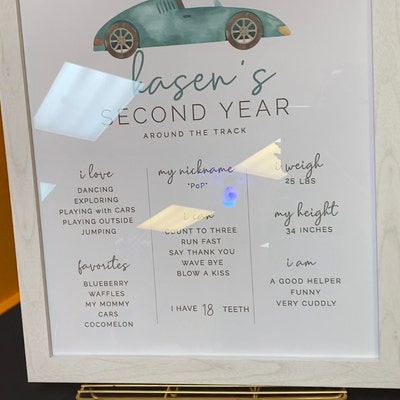 kasen's
SECOND YEAR
AROUND THE TRACK
i love
DANCING
EXPLORING
PLAYING with CARS
PLAYING OUTSIDE
JUMPING
favorites
BLUEBERRY
WAFFLES
MY MOMMY
CARS
COCOMELON
my nickname
"POP"
i can
COUNT TO THREE
RUN FAST
SAY THANK YOU
WAVE BYE
BLOW A KISS
I HAVE 18 TEETH
i weigh
25 LBS
my height
34 INCHES
i am
A GOOD HELPER
FUNNY
VERY CUDDLY